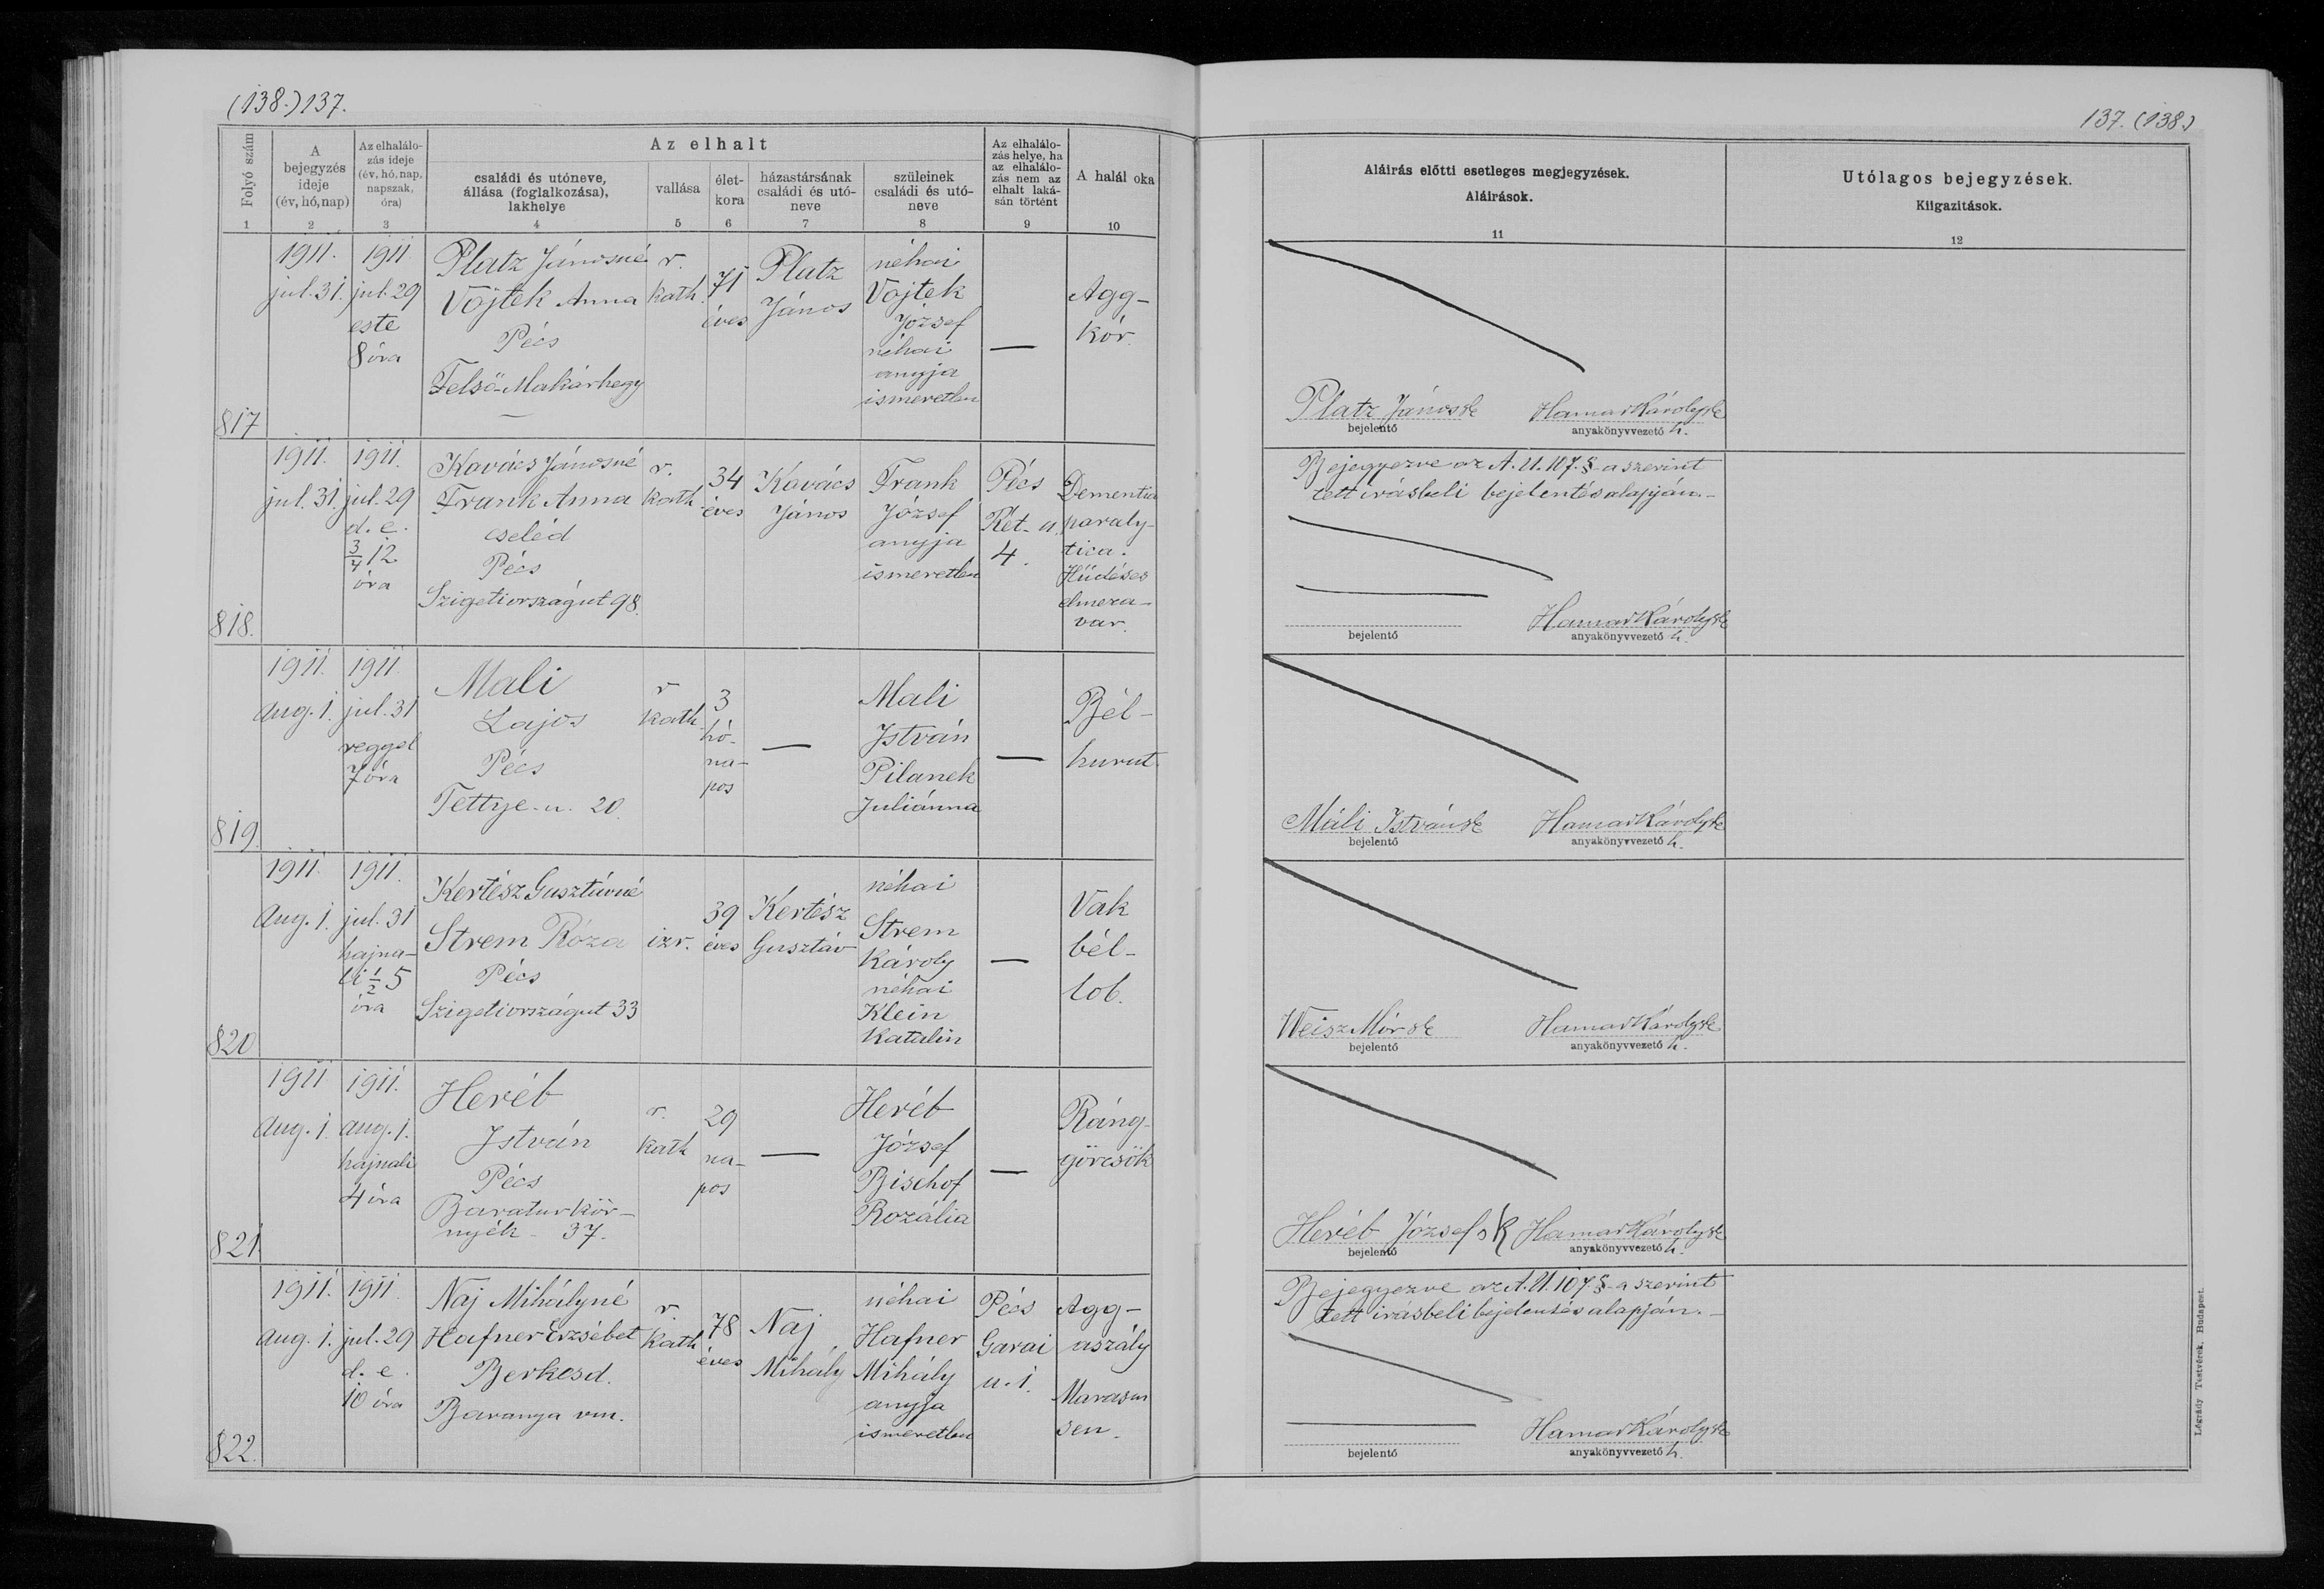 (138.) 137.
137. (138.)
Folyó szám
A bejegyzés ideje (év, hó, nap)
Az elhalálozás ideje (év, hó, nap, napszak, óra)
Az elhalt
családi és utóneve, állása (foglalkozása), lakhelye
vallása
életkora
házastársának családi és utóneve
szüleinek családi és utóneve
Az elhalálozás helye, ha az elhalálozás nem az elhalt lakásán történt
A halál oka
Aláirás előtti esetleges megjegyzések.
Aláirások.
Utólagos bejegyzések.
Kiigazitások.
1 2 3 4 5 6 7 8 9 10 11 12
817
1911.
jul. 31.
1911
jul. 29
este
8 óra
Platz Jánosné
Vojtek Anna
Pécs
Felső-Makárhegy
r.
kath.
71
éves
Platz
János
néhai
Vojtek
József
néhai
anyja
ismeretlen
—
Agg-
kór.
Platz János sk
bejelentő
Hamar Károly sk
anyakönyvvezető h.
818.
1911.
jul. 31.
1911.
jul. 29
d. e.
3/4 12
óra
Kovács Jánosné
Frank Anna
cseléd
Pécs
Szigetiországut 98.
r.
kath.
34
éves
Kovács
János
Frank
József
anyja
ismeretlen
Pécs
Rét-u.
4.
Dementia
paraly-
tica.
Hüdéses
elmeza-
var.
Bejegyezve az A. U. 107. §-a szerint
tett irásbeli bejelentés alapján. —
bejelentő
Hamar Károly sk
anyakönyvvezető h.
819.
1911.
Aug. 1.
1911.
jul. 31
reggel
7 óra
Mali
Lajos
Pécs
Tettye-u. 20.
r
kath.
3
hó-
na-
pos
—
Mali
István
Pilanek
Juliánna
—
Bél-
hurut.
Máli István sk
bejelentő
Hamar Károly sk
anyakönyvvezető h.
820
1911.
Aug. 1.
1911.
jul. 31
hajna-
li 1/2 5
óra
Kertész Gusztávné
Strem Róza
Pécs
Szigetiországut 33
izr.
39
éves
Kertész
Gusztáv
néhai
Strem
Károly
néhai
Klein
Katalin
—
Vak
bél-
lob.
Weisz Mór sk
bejelentő
Hamar Károly sk
anyakönyvvezető h.
821
1911
Aug. 1.
1911.
aug. 1.
hajnali
4 óra
Heréb
István
Pécs
Baraturkör-
nyék - 37.
r.
kath
29
na-
pos
—
Heréb
József
Bischof
Rozália
—
Ráng-
görcsök
Heréb József sk
bejelentő
Hamar Károly sk
anyakönyvvezető h.
822.
1911.
Aug. 1.
1911.
jul. 29
d. e.
10 óra
Naj Mihályné
Hafner Erzsébet
Berkesd.
Baranya vm.
r.
kath
78
éves
Naj
Mihály
néhai
Hafner
Mihály
anyja
ismeretlen
Pécs
Garai
u. 1.
Agg-
aszály
Marasm
sen.
Bejegyezve az A. U. 107. §-a szerint
tett irásbeli bejelentés alapján. —
bejelentő
Hamar Károly sk
anyakönyvvezető h.
Légrády Testvérek, Budapest.